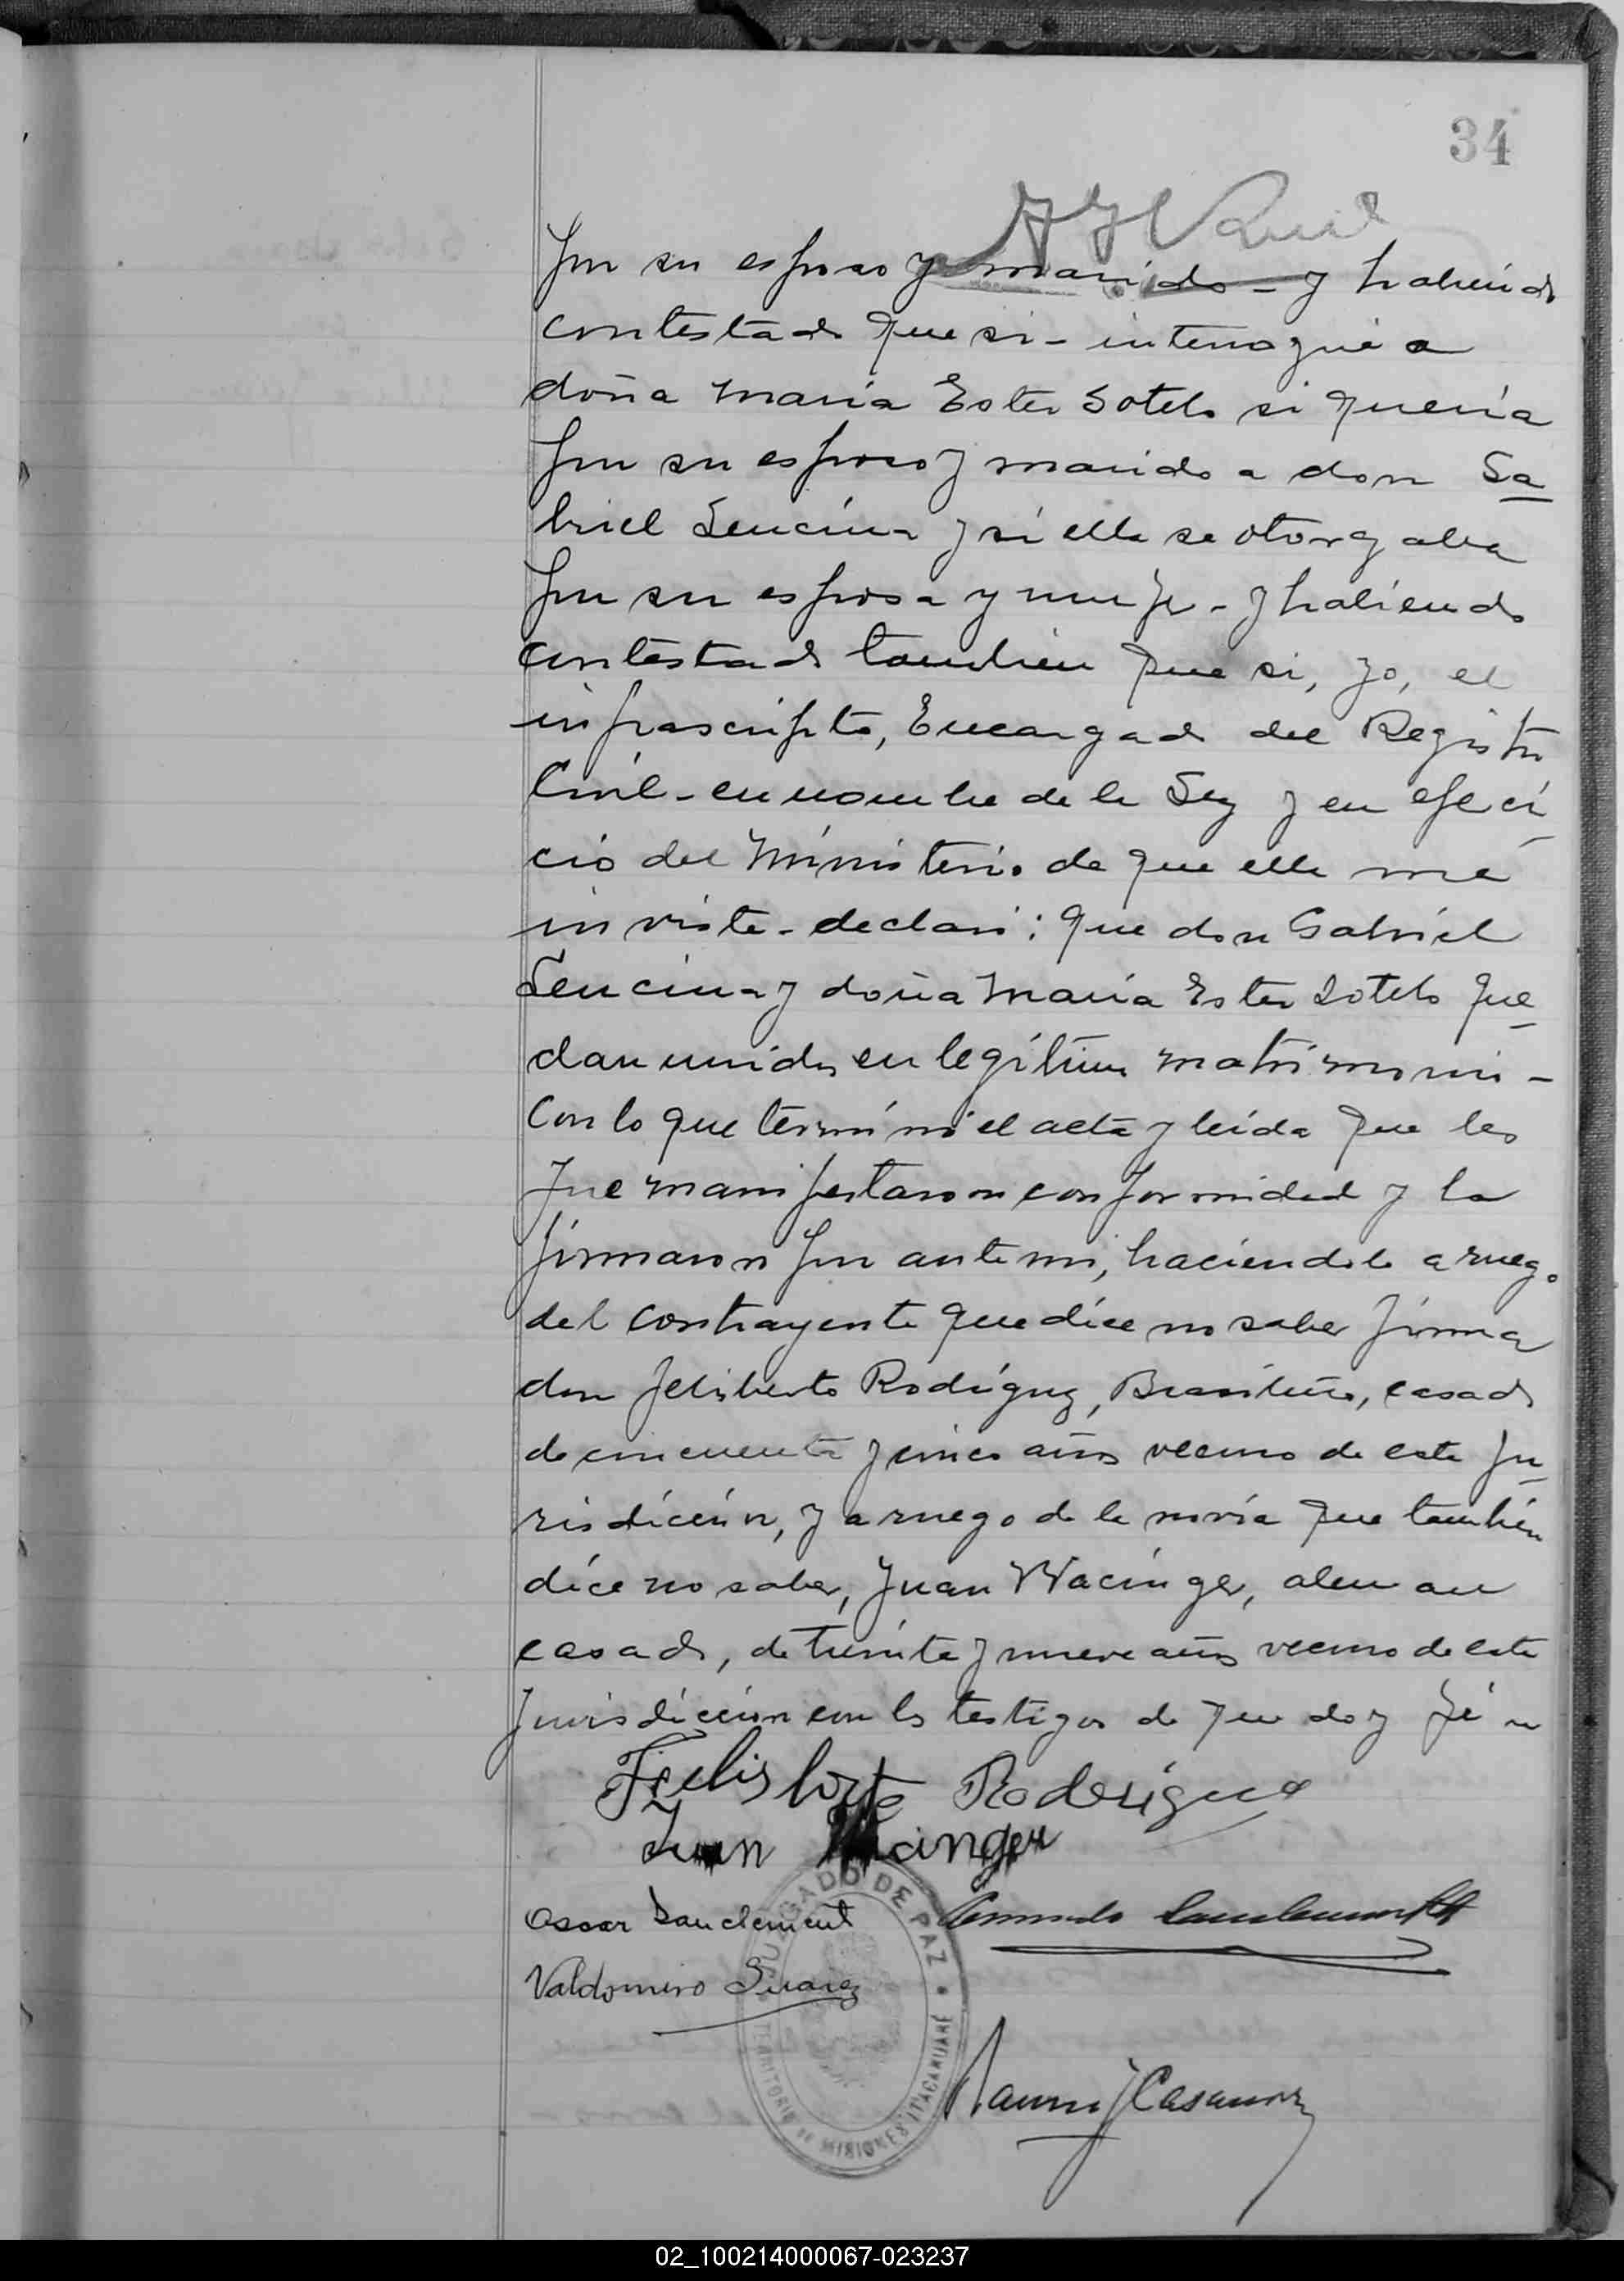 34
por su esposo y marido - y habiendo
contestado que si - interrogué a
doña María Ester Sotelo si quería
por su esposo y marido a don Ga
briel Lencina y si ella se otorgaba
por su esposa y mujer - y habiendo
contestado tambien que si, yo, el
infrascripto, Encargado del Registro
Civil - en nombre de la Ley y en ejerci
cio del Ministerio de que ella me
inviste - declaro: que don Gabriel
Lencina y doña María Ester Sotelo que
dan unidos en legítimo matrimonio -
Con lo que terminó el acta y leída que les
fue manifestaron conformidad y la
firmaron por ante mi, haciendolo a ruego
del contrayente que dice no saber firmar
don Felisberto Rodíguez, Brasilero, casado
de cincuenta y cinco años vecino de esta ju
risdicción, y a ruego de la novia que también
dice no saber, Juan Wacinger, aleman
casado, de treinta y nueve años vecino de esta
jurisdicción con los testigos de que doy fé
Felisborto Roderigues
Juan
Oscar Sanclement
Valdomiro Suarez
JUZGADO DE PAZ
TERRITORIO DE MISIONES ITACARUARÉ
Casanova
02_100214000067-023237